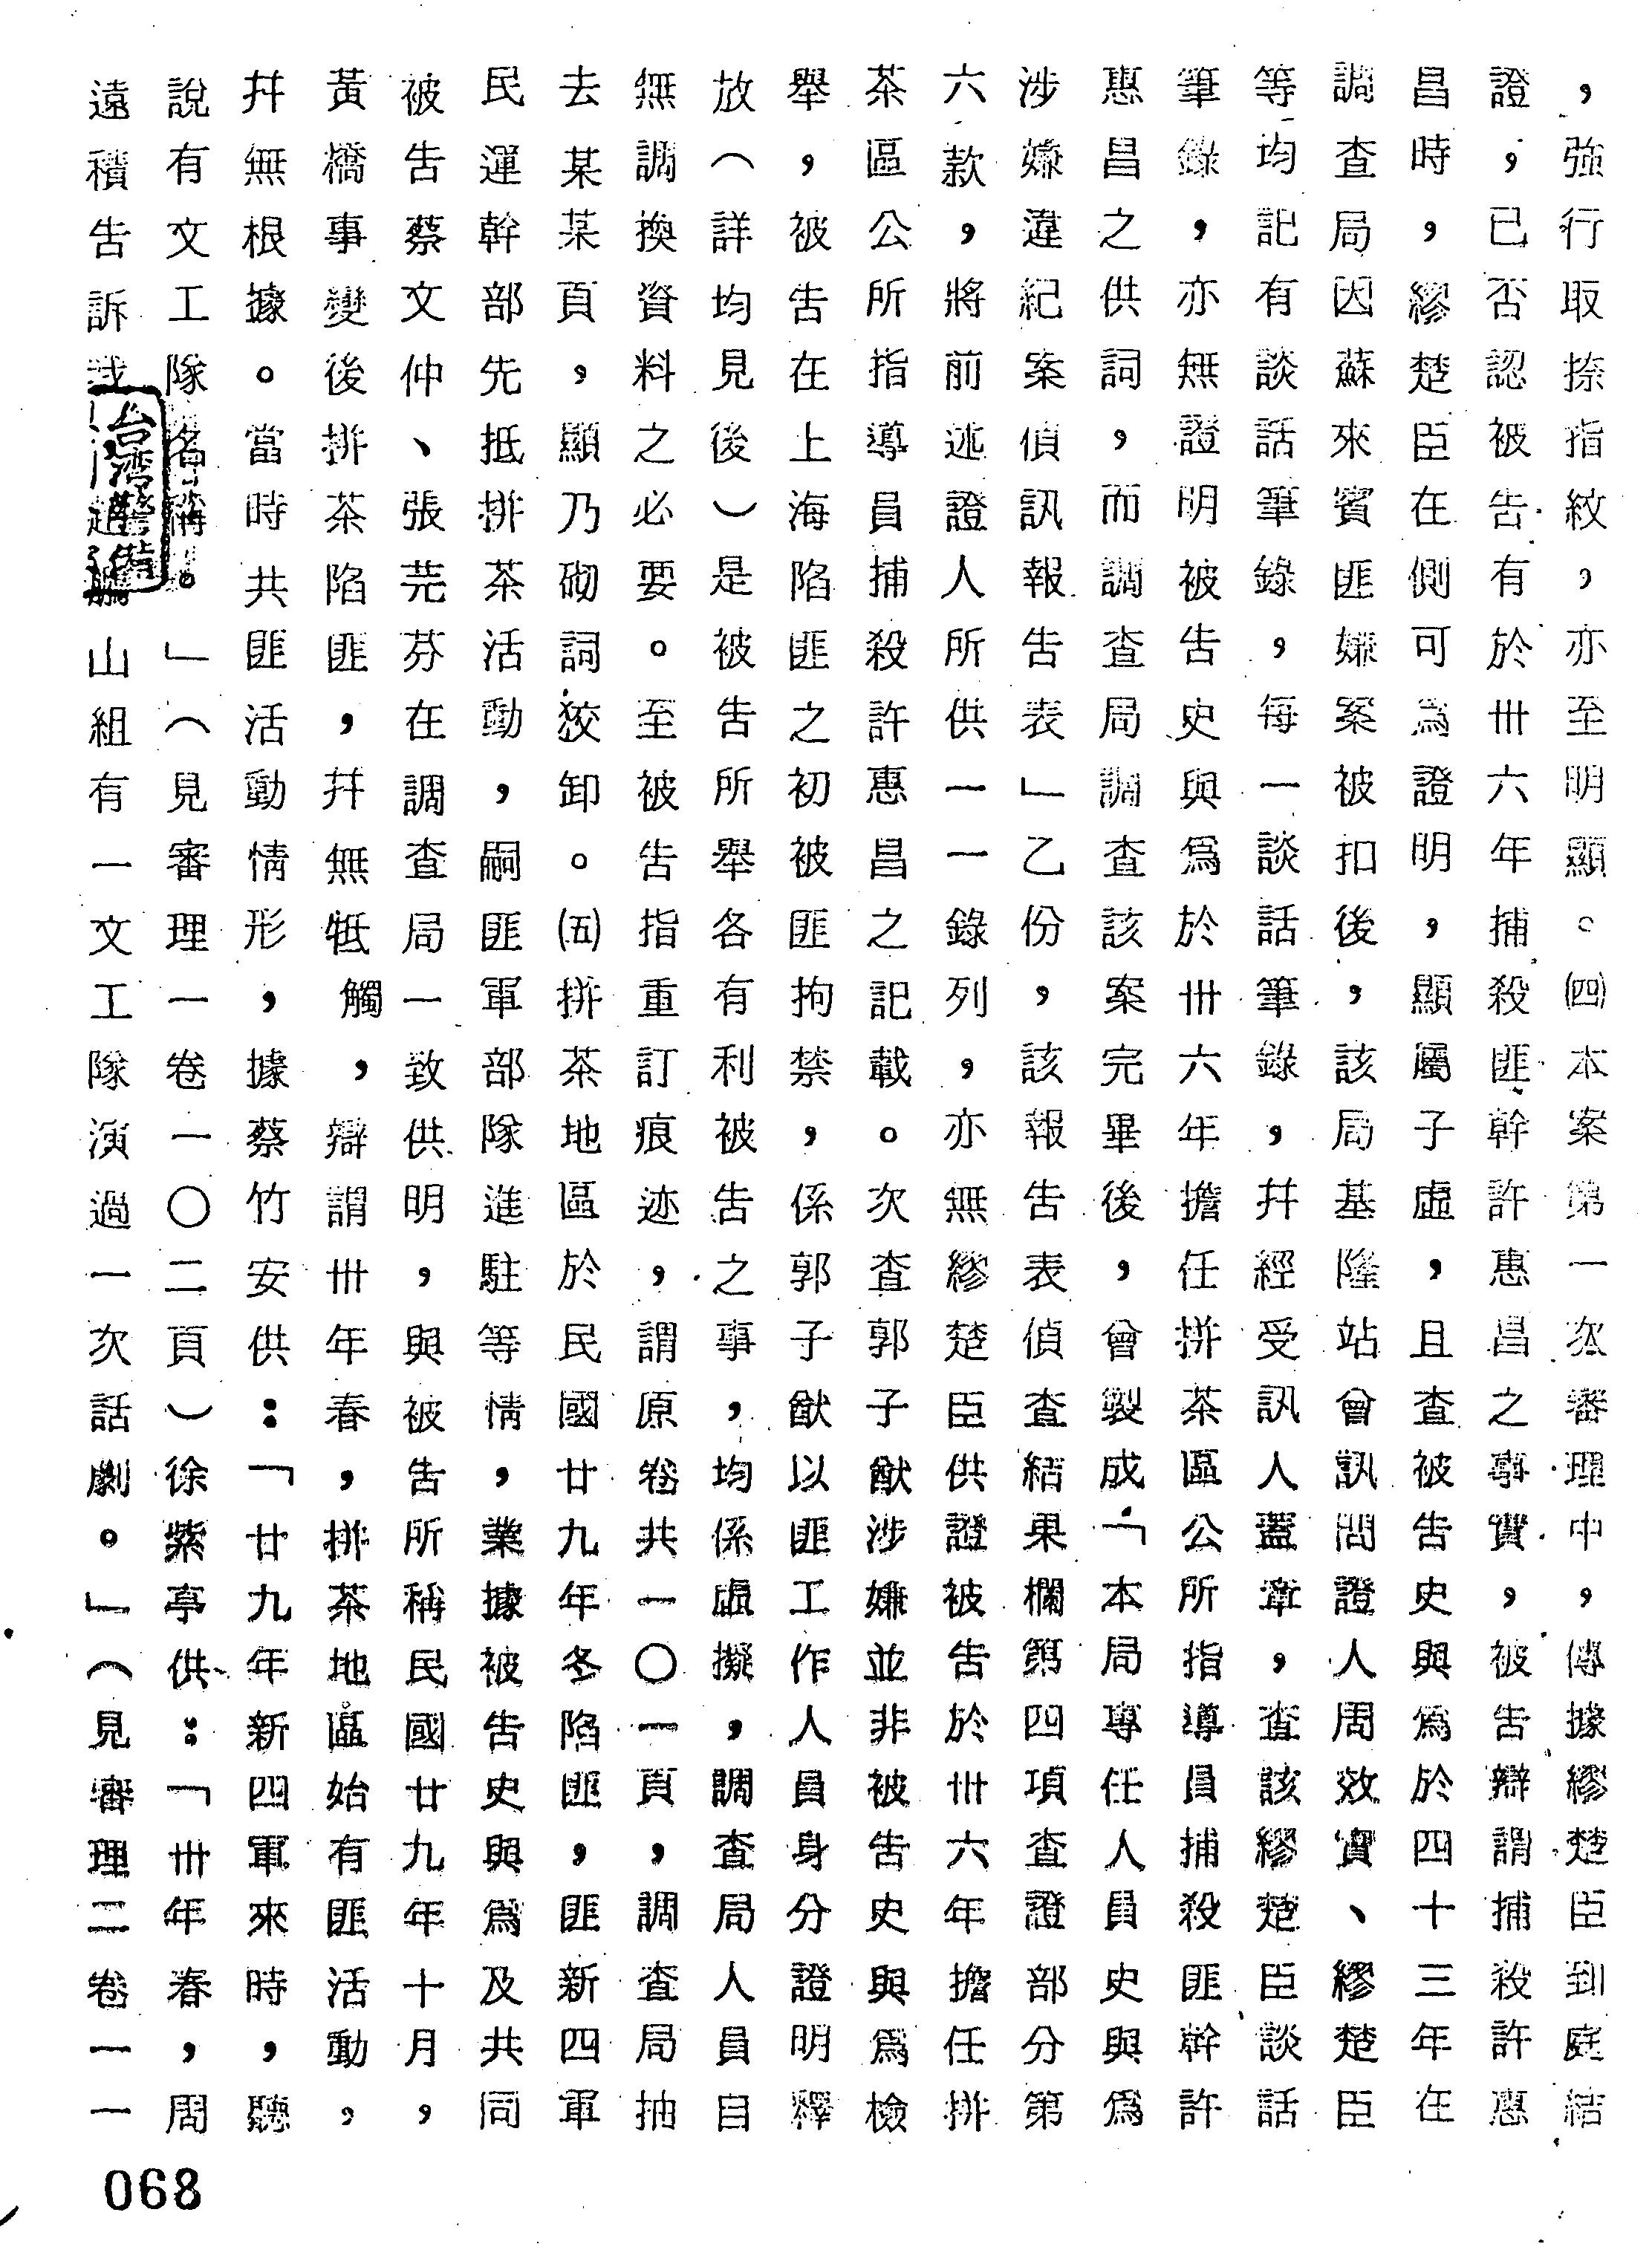 ，強行取捺指紋，亦至明顯。㈣本案第一次審理中，傳據繆楚臣到庭結
證，已否認被告有於卅六年捕殺匪幹許惠昌之事實，被告辯謂捕殺許惠
昌時，繆楚臣在側可為證明，顯屬子虛，且查被告史與為於四十三年在
調查局因蘇來賓匪嫌案被扣後，該局基隆站曾訊問證人周效實、繆楚臣
等均記有談話筆錄，每一談話筆錄，幷經受訊人蓋章，查該繆楚臣談話
筆錄，亦無證明被告史與為於卅六年擔任拼茶區公所指導員捕殺匪幹許
惠昌之供詞，而調查局調查該案完畢後，曾製成「本局專任人員史與為
涉嫌違紀案偵訊報告表」乙份，該報告表偵查結果欄第四項查證部分第
六款，將前述證人所供一一錄列，亦無繆楚臣供證被告於卅六年擔任拼
茶區公所指導員捕殺許惠昌之記載。次查郭子猷涉嫌並非被告史與為檢
舉，被告在上海陷匪之初被匪拘禁，係郭子猷以匪工作人員身分證明釋
放（詳均見後）是被告所舉各有利被告之事，均係虛擬，調查局人員自
無調換資料之必要。至被告指重訂痕迹，謂原卷共一〇一頁，調查局抽
去某某頁，顯乃砌詞狡卸。㈤拼茶地區於民國廿九年冬陷匪，匪新四軍
民運幹部先抵拼茶活動，嗣匪軍部隊進駐等情，業據被告史與為及共同
被告蔡文仲、張芫芬在調查局一致供明，與被告所稱民國廿九年十月，
黃橋事變後拼茶陷匪，幷無牴觸，辯謂卅年春，拼茶地區始有匪活動，
幷無根據。當時共匪活動情形，據蔡竹安供：「廿九年新四軍來時，聽
說有文工隊名稱。」（見審理一卷一〇二頁）徐紫亭供：「卅年春，周
遠積告訴我趙鵬山組有一文工隊演過一次話劇。」（見審理二卷一一
台灣警備
068